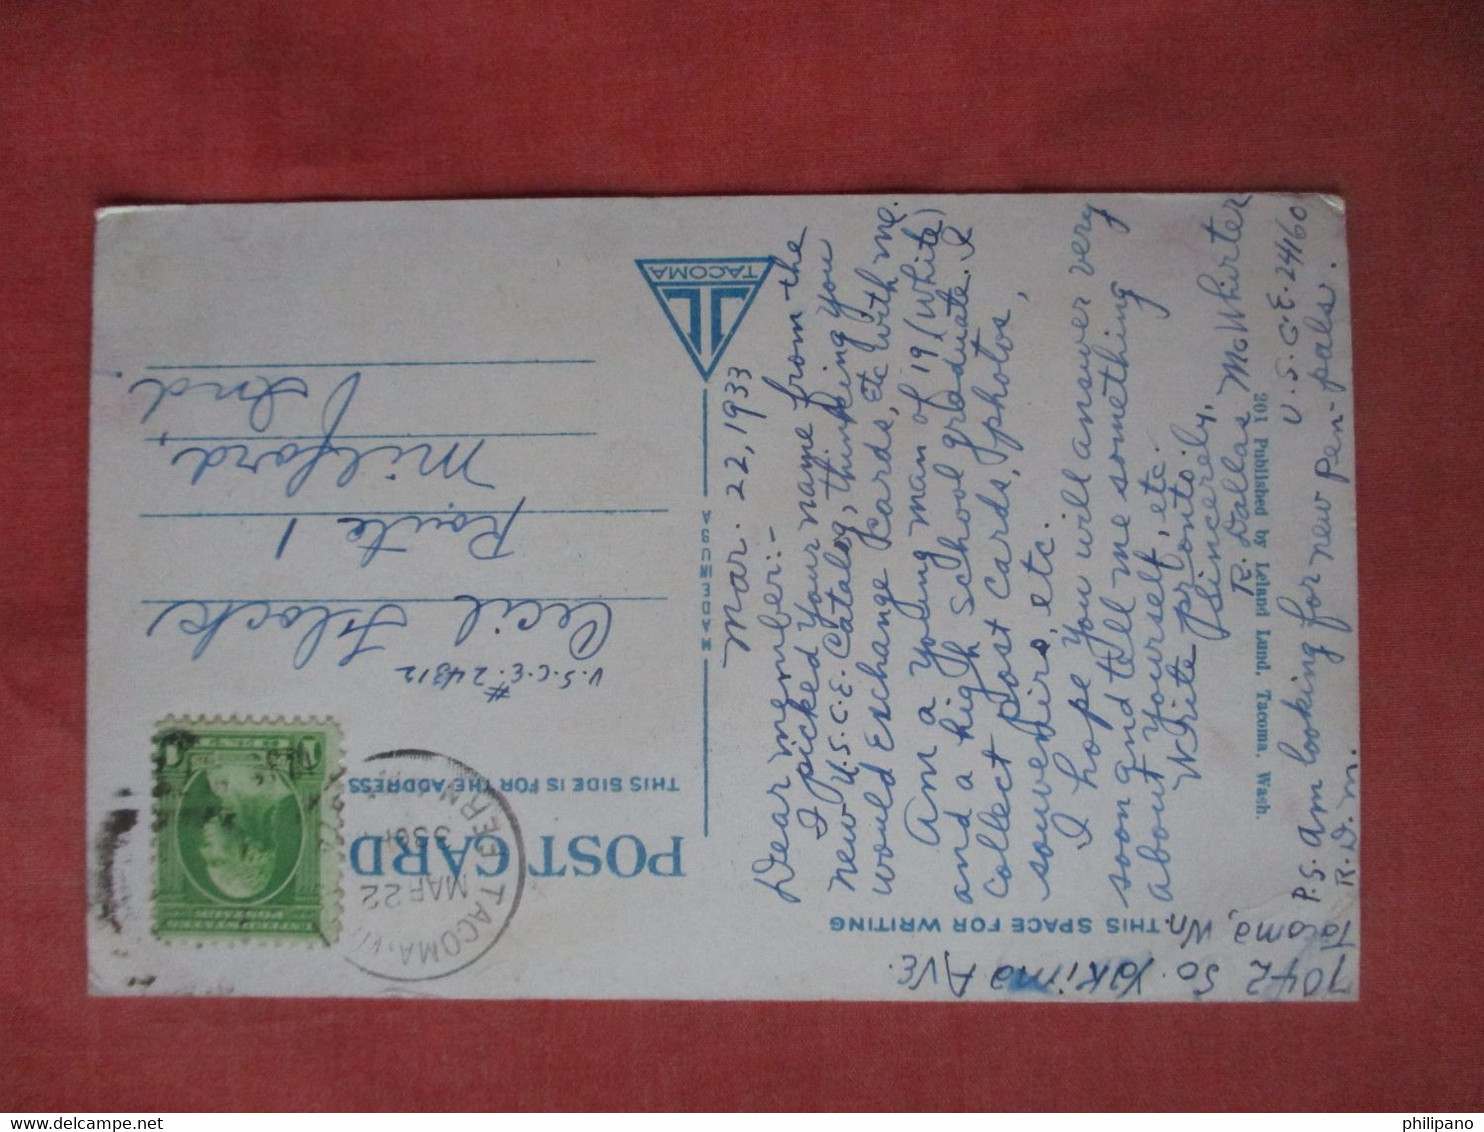 7042 So. Yakima Ave.
Tacoma, Wn.
THIS SPACE FOR WRITING
POST CARD
THIS SIDE IS FOR THE ADDRESS
TACOMA
MAR 22
1933
TACOMA
MADE IN USA
U.S.C.E.
# 24312
Cecil Flock
Route 1
Milford,
Ind.
Mar. 22, 1933
Dear member:-
I picked your name from the
new U.S.C.E. Catalog, thinking you
would exchange cards, etc with me.
Am a young man of 19 (white)
and a high school graduate. I
collect post cards, photos,
souvenirs, etc.
I hope you will answer very
soon and tell me something
about yourself, etc.
Write pronto.
Sincerely,
R. Dallas McWhirter
U.S.C.E. 24460
201 Published by Leland Lund, Tacoma, Wash.
P.S. Am looking for new pen-pals.
R.D.M.
philipano